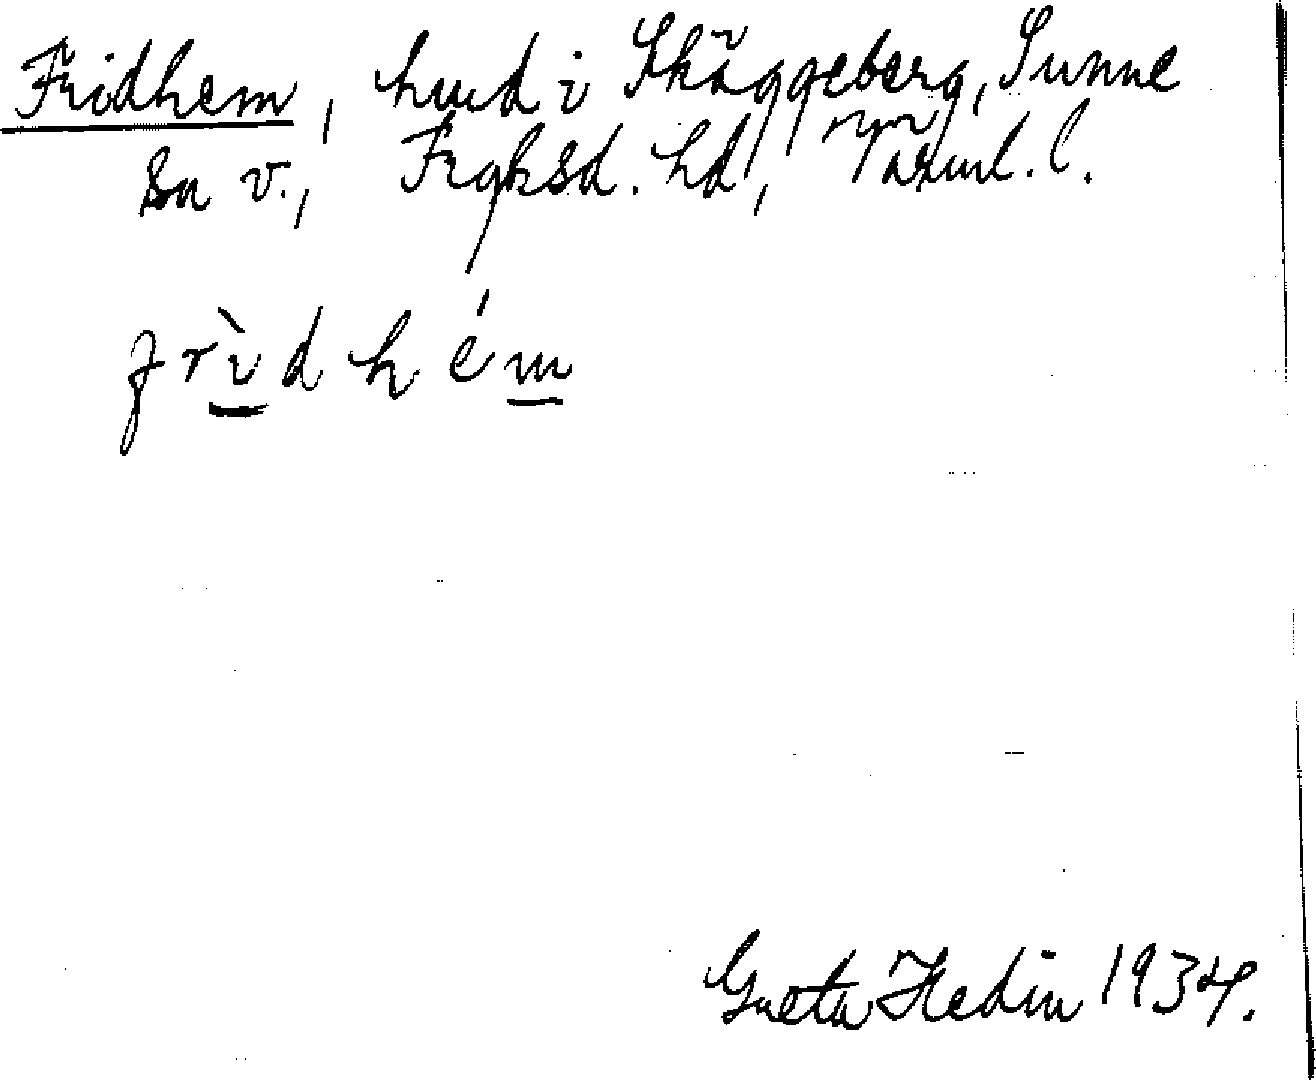 Fridhem, hmd i Skäggeberg, Sunne
sn v., Fryksd. hd, Värml. l.
frìdhém
Greta Hedin 1934.